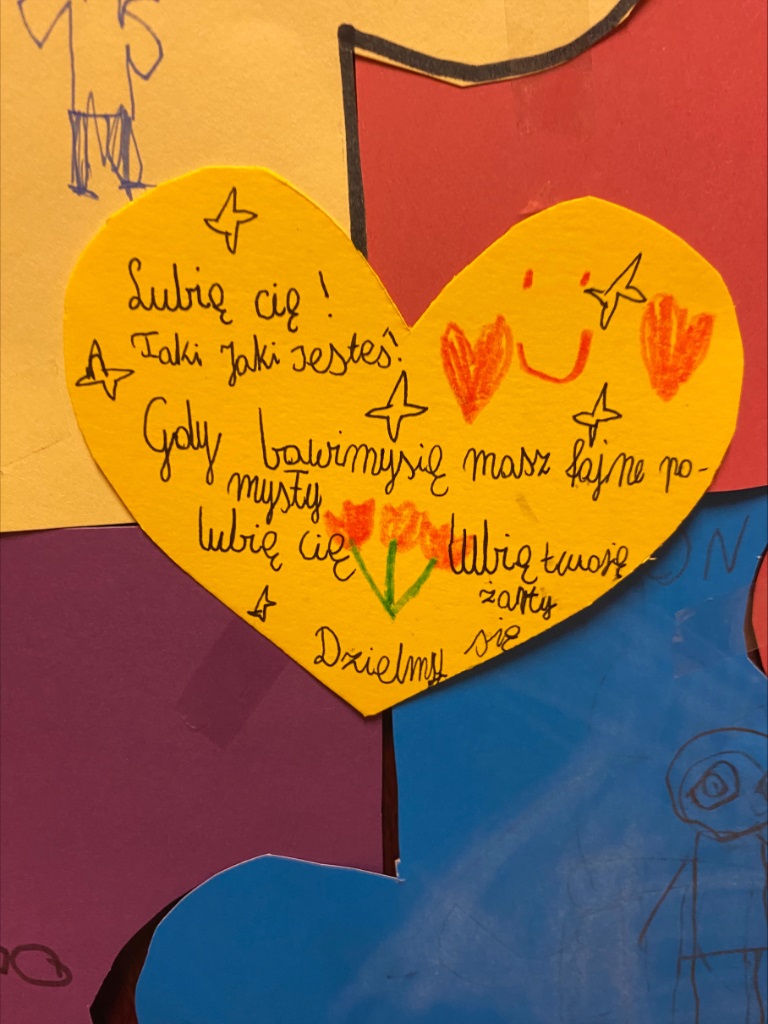 Lubię cię!
Taki Jaki Jesteś!
Gdy bawimysię masz fajne po-
mysły
lubię cię Lubię twoję
żarty
Dzielmy się
ON